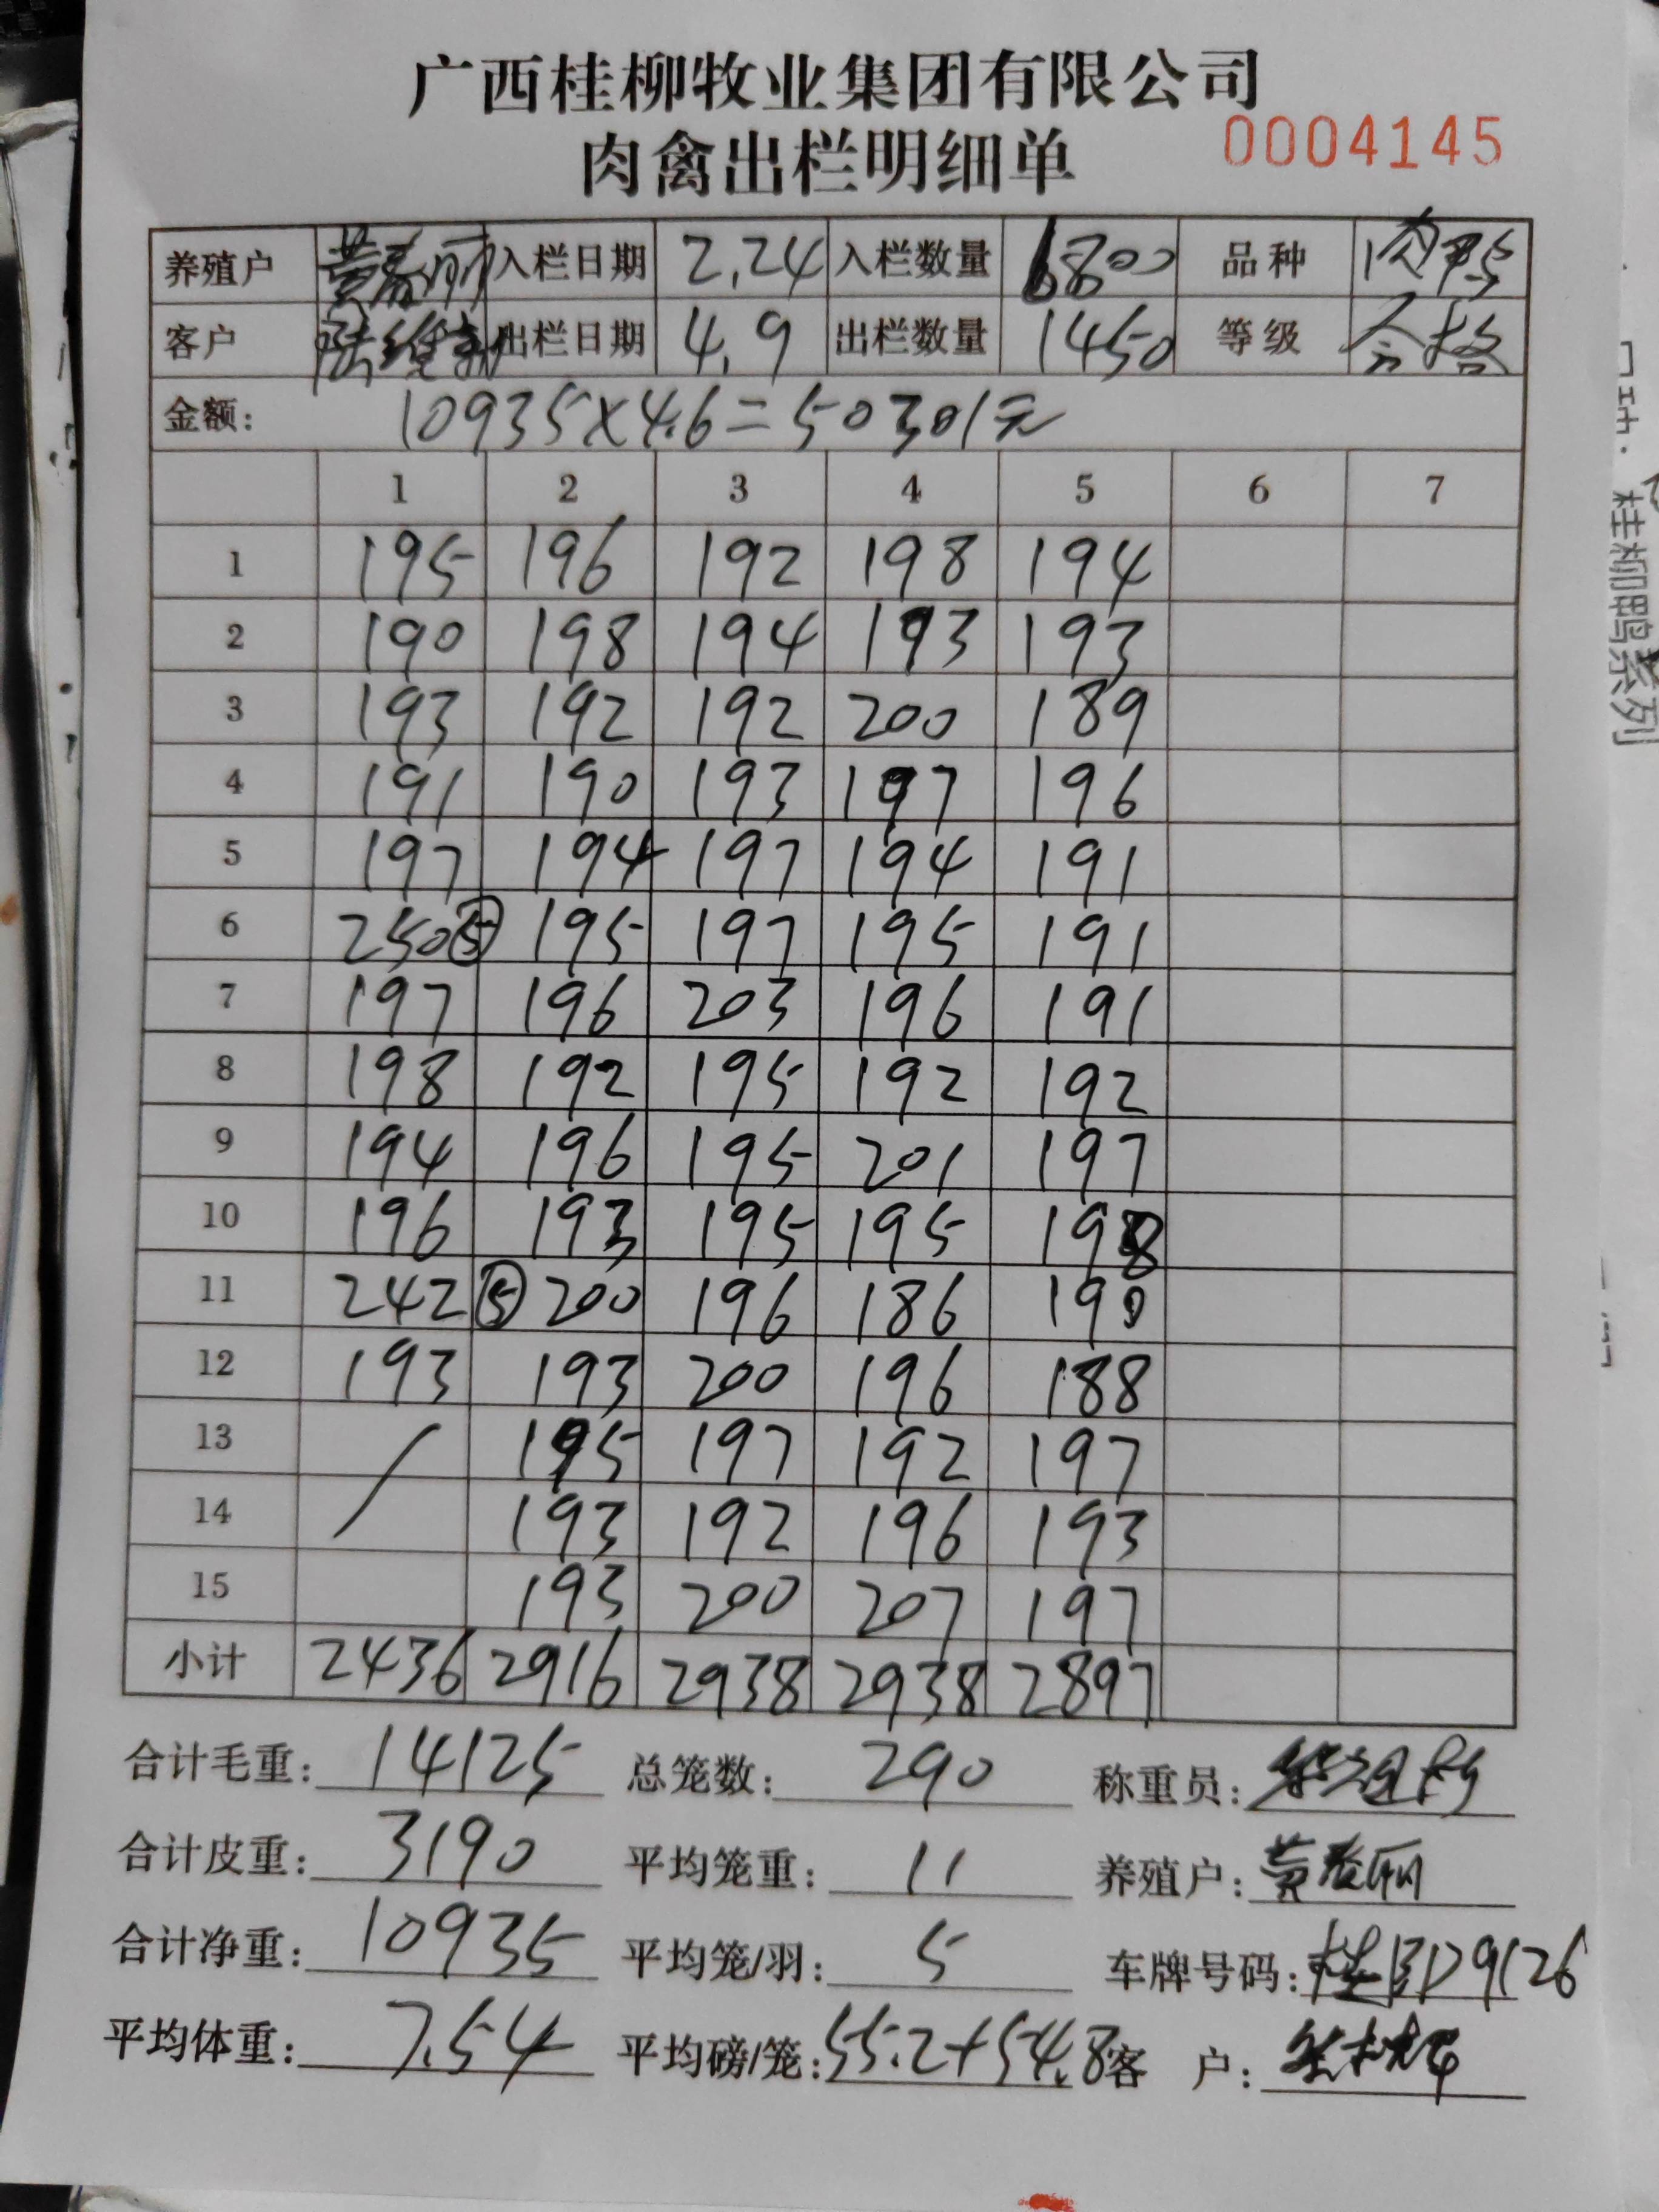 广西桂柳牧业集团有限公司
肉禽出栏明细单 0004145
养殖户 黄春丽 入栏日期 2.24 入栏数量 6800 品种 肉鸭
客户 陆维新 出栏日期 4.9 出栏数量 1450 等级 合格
金额: 10935×4.6=50301元
1 2 3 4 5 6 7
1 195 196 192 198 194
2 190 198 194 193 193
3 193 192 192 200 189
4 191 190 193 197 196
5 197 194 197 194 191
6 250⑤ 195 197 195 191
7 197 196 203 196 191
8 198 192 195 192 192
9 194 196 195 201 197
10 196 193 195 195 198
11 242⑤ 200 196 186 190
12 193 193 200 196 188
13 195 197 192 197
14 193 192 196 193
15 193 200 207 197
小计 2436 2916 2938 2938 2897
合计毛重: 14125 总笼数: 290 称重员:
合计皮重: 3190 平均笼重: 11 养殖户: 黄春丽
合计净重: 10935 平均笼/羽: 5 车牌号码: 桂 D9126
平均体重: 7.54 平均磅/笼: 55.2+54.8 客 户:
桂柳鸭系列